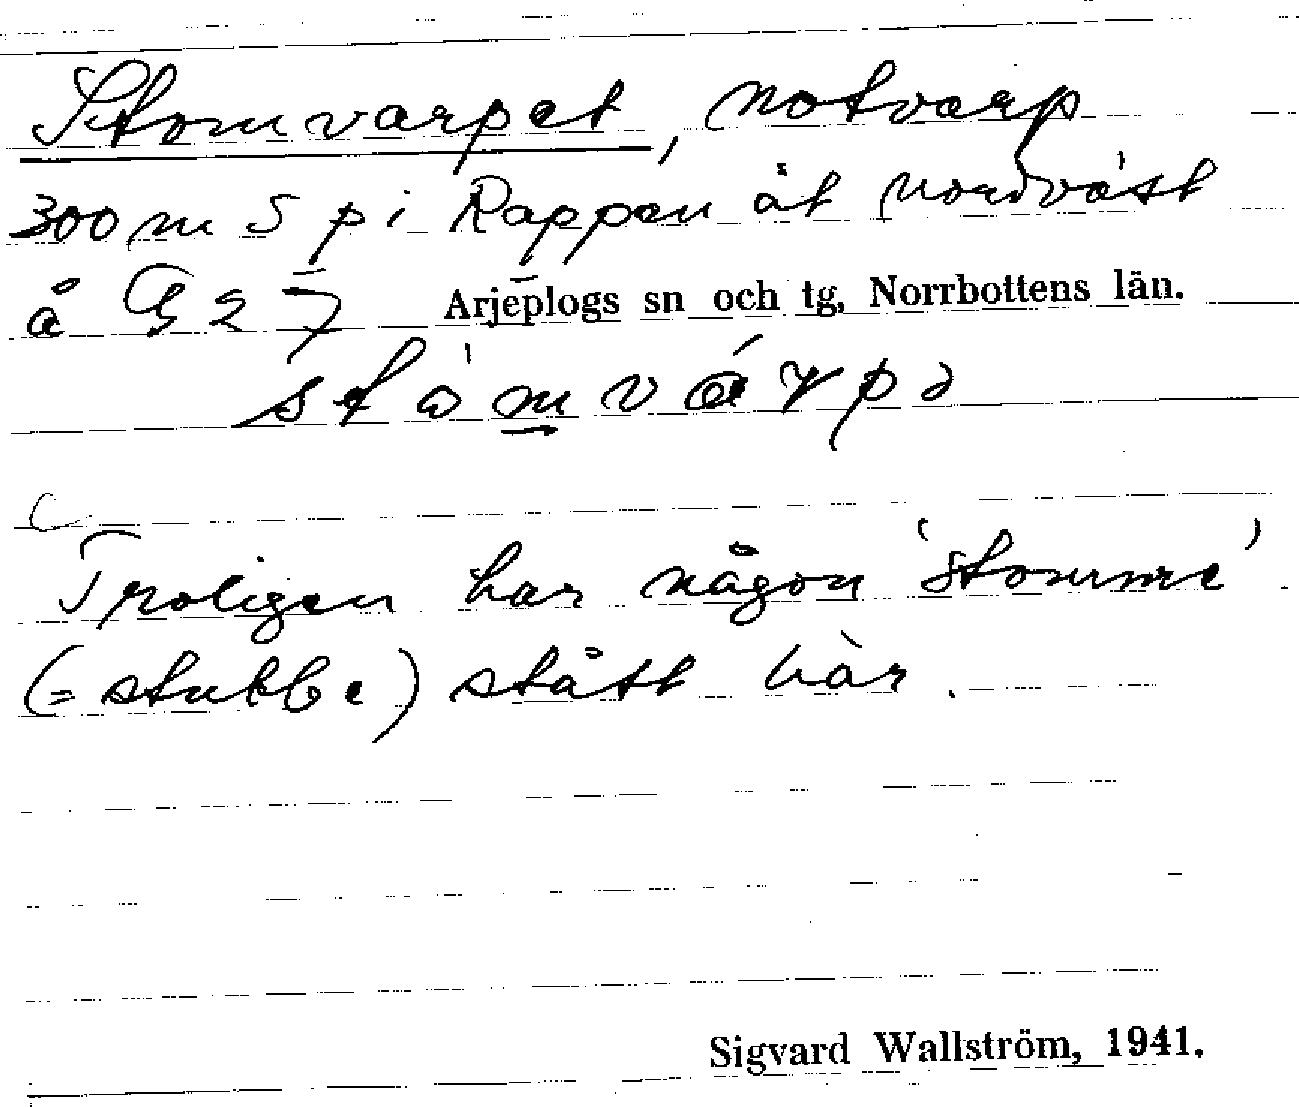 Stomvarpet, notvarp
300 m S p i Rappen åt nordväst
å G 2 7 Arjeplogs sn och tg, Norrbottens län.
Troligen har någon 'stomme'
(= stubbe) stått här.
Sigvard Wallström, 1941.